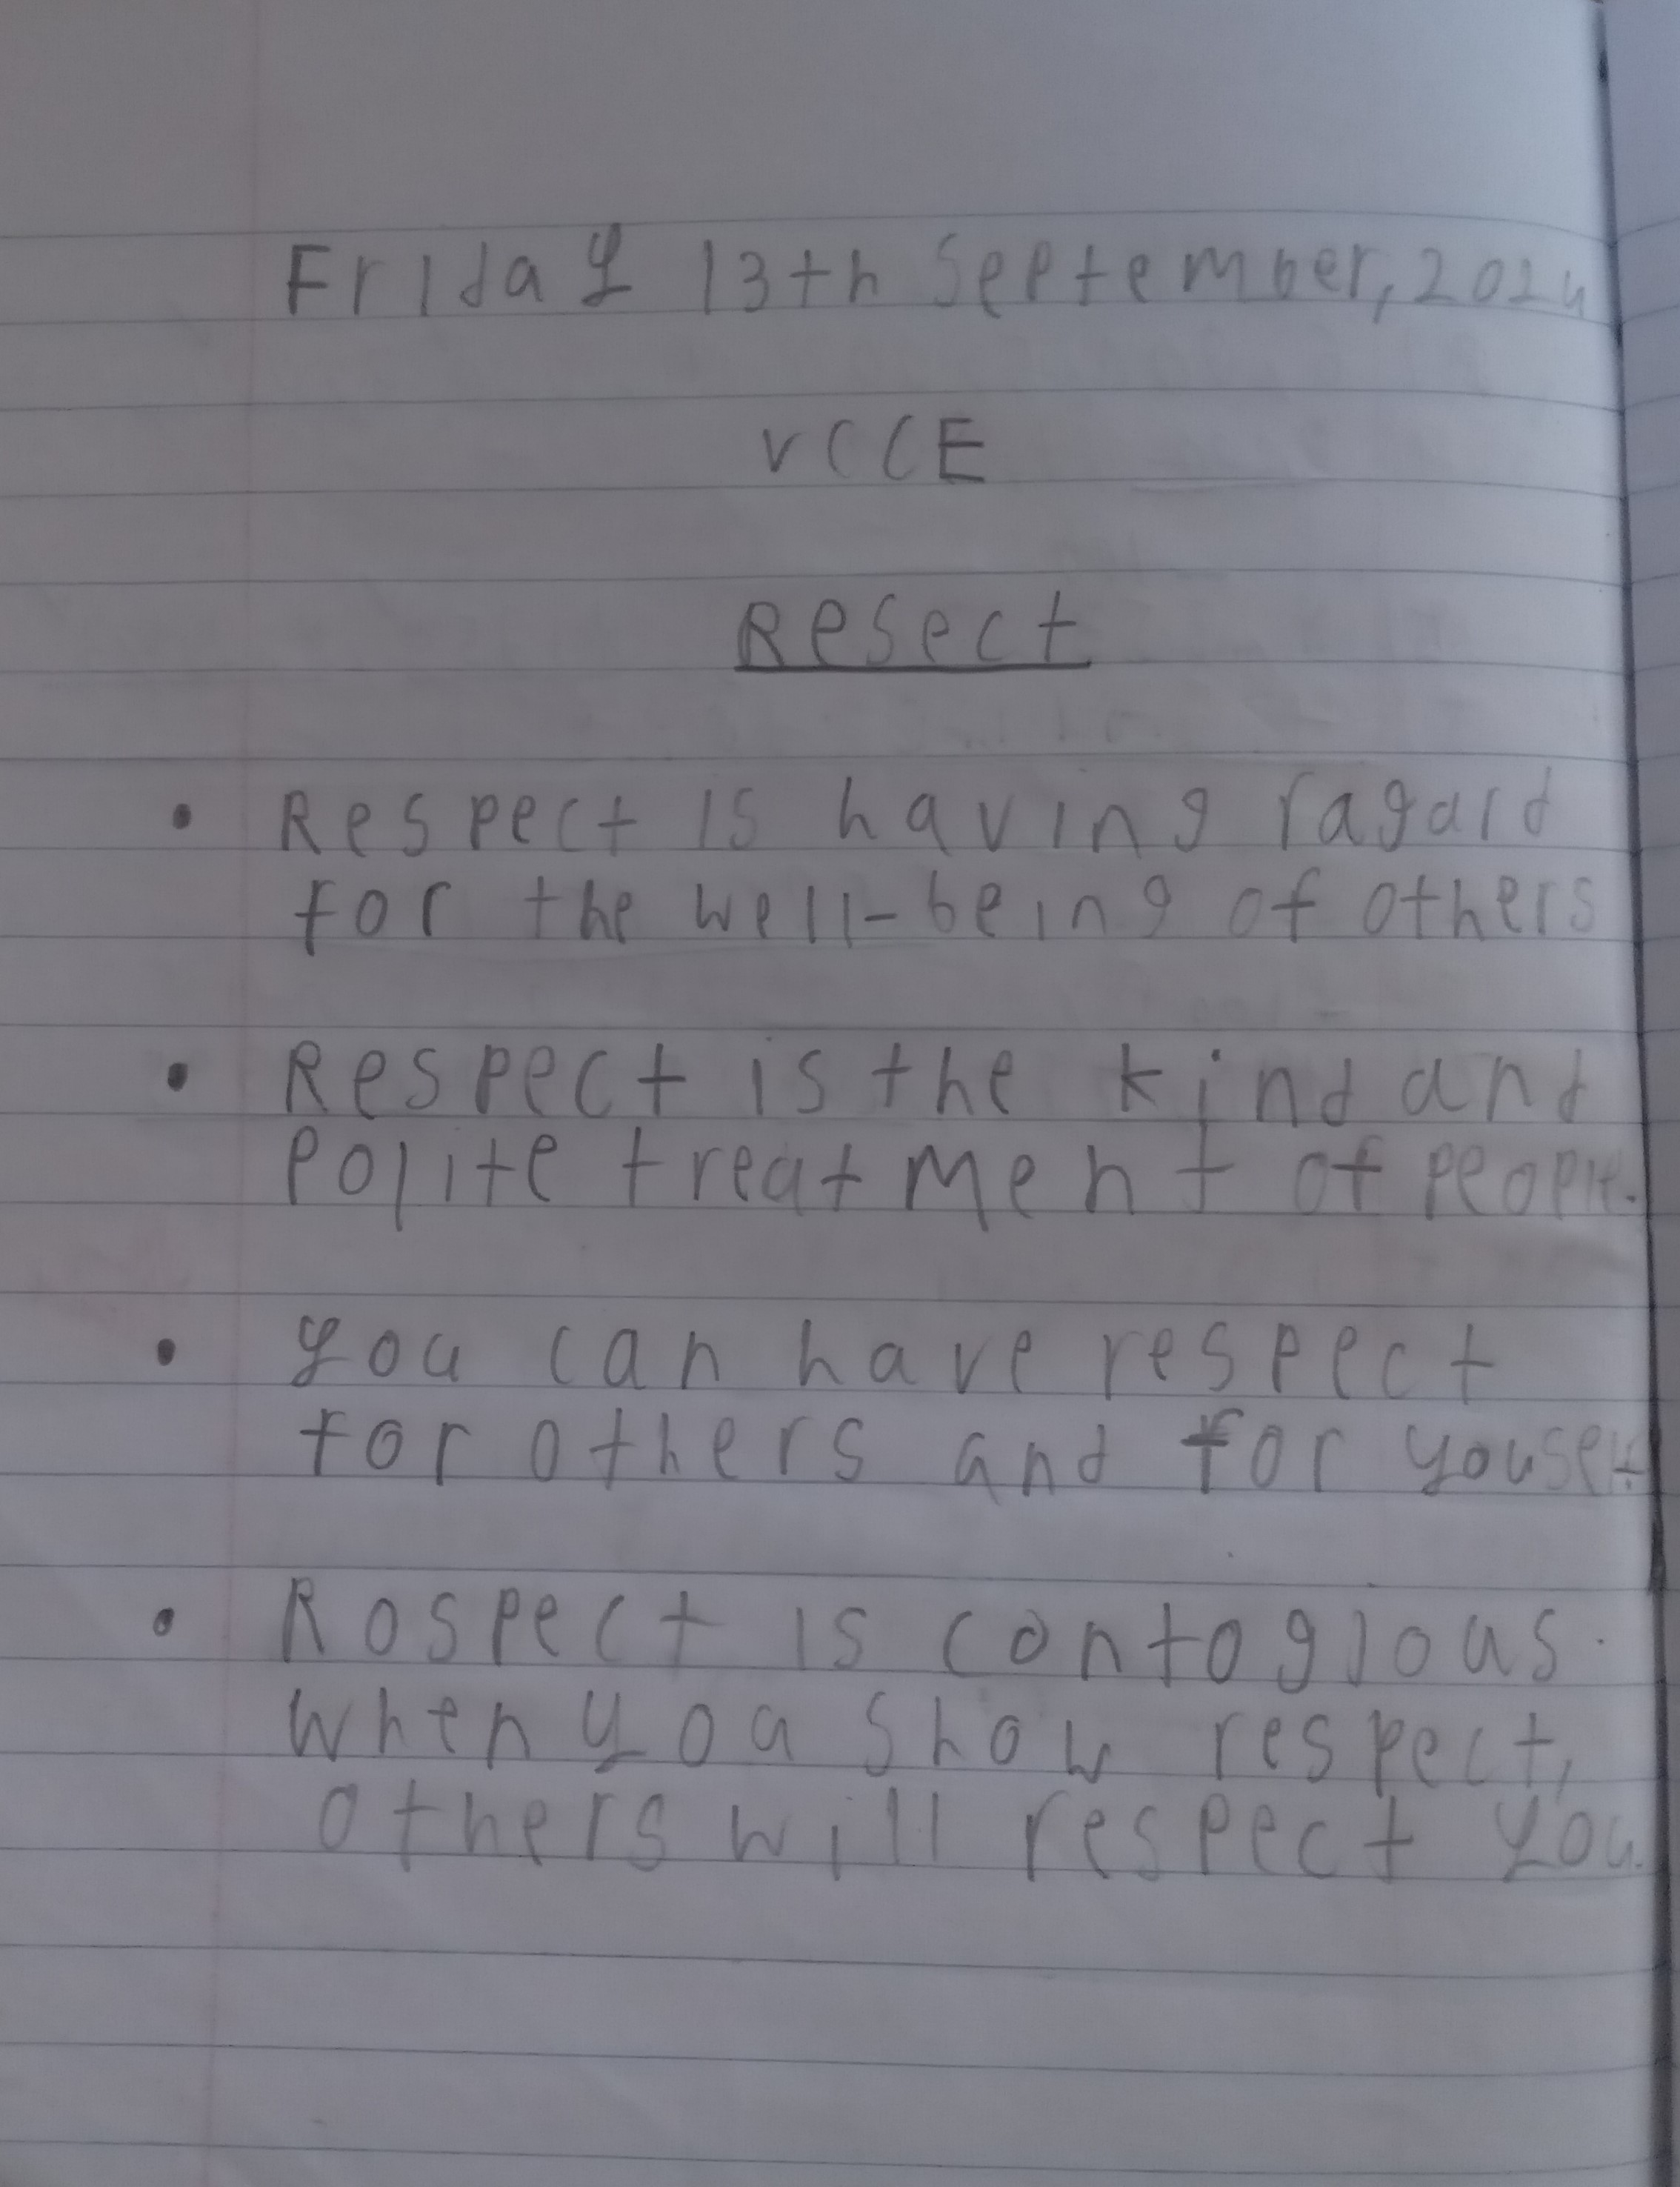 Friday 13th September, 2024
VCCE
Resect
• Respect is having ragard
for the well-being of others
• Respect is the kind and
Polite treatment of people.
• you can have respect
for others and for youself
• Rospect is contogious.
when you show respect,
others will respect you.